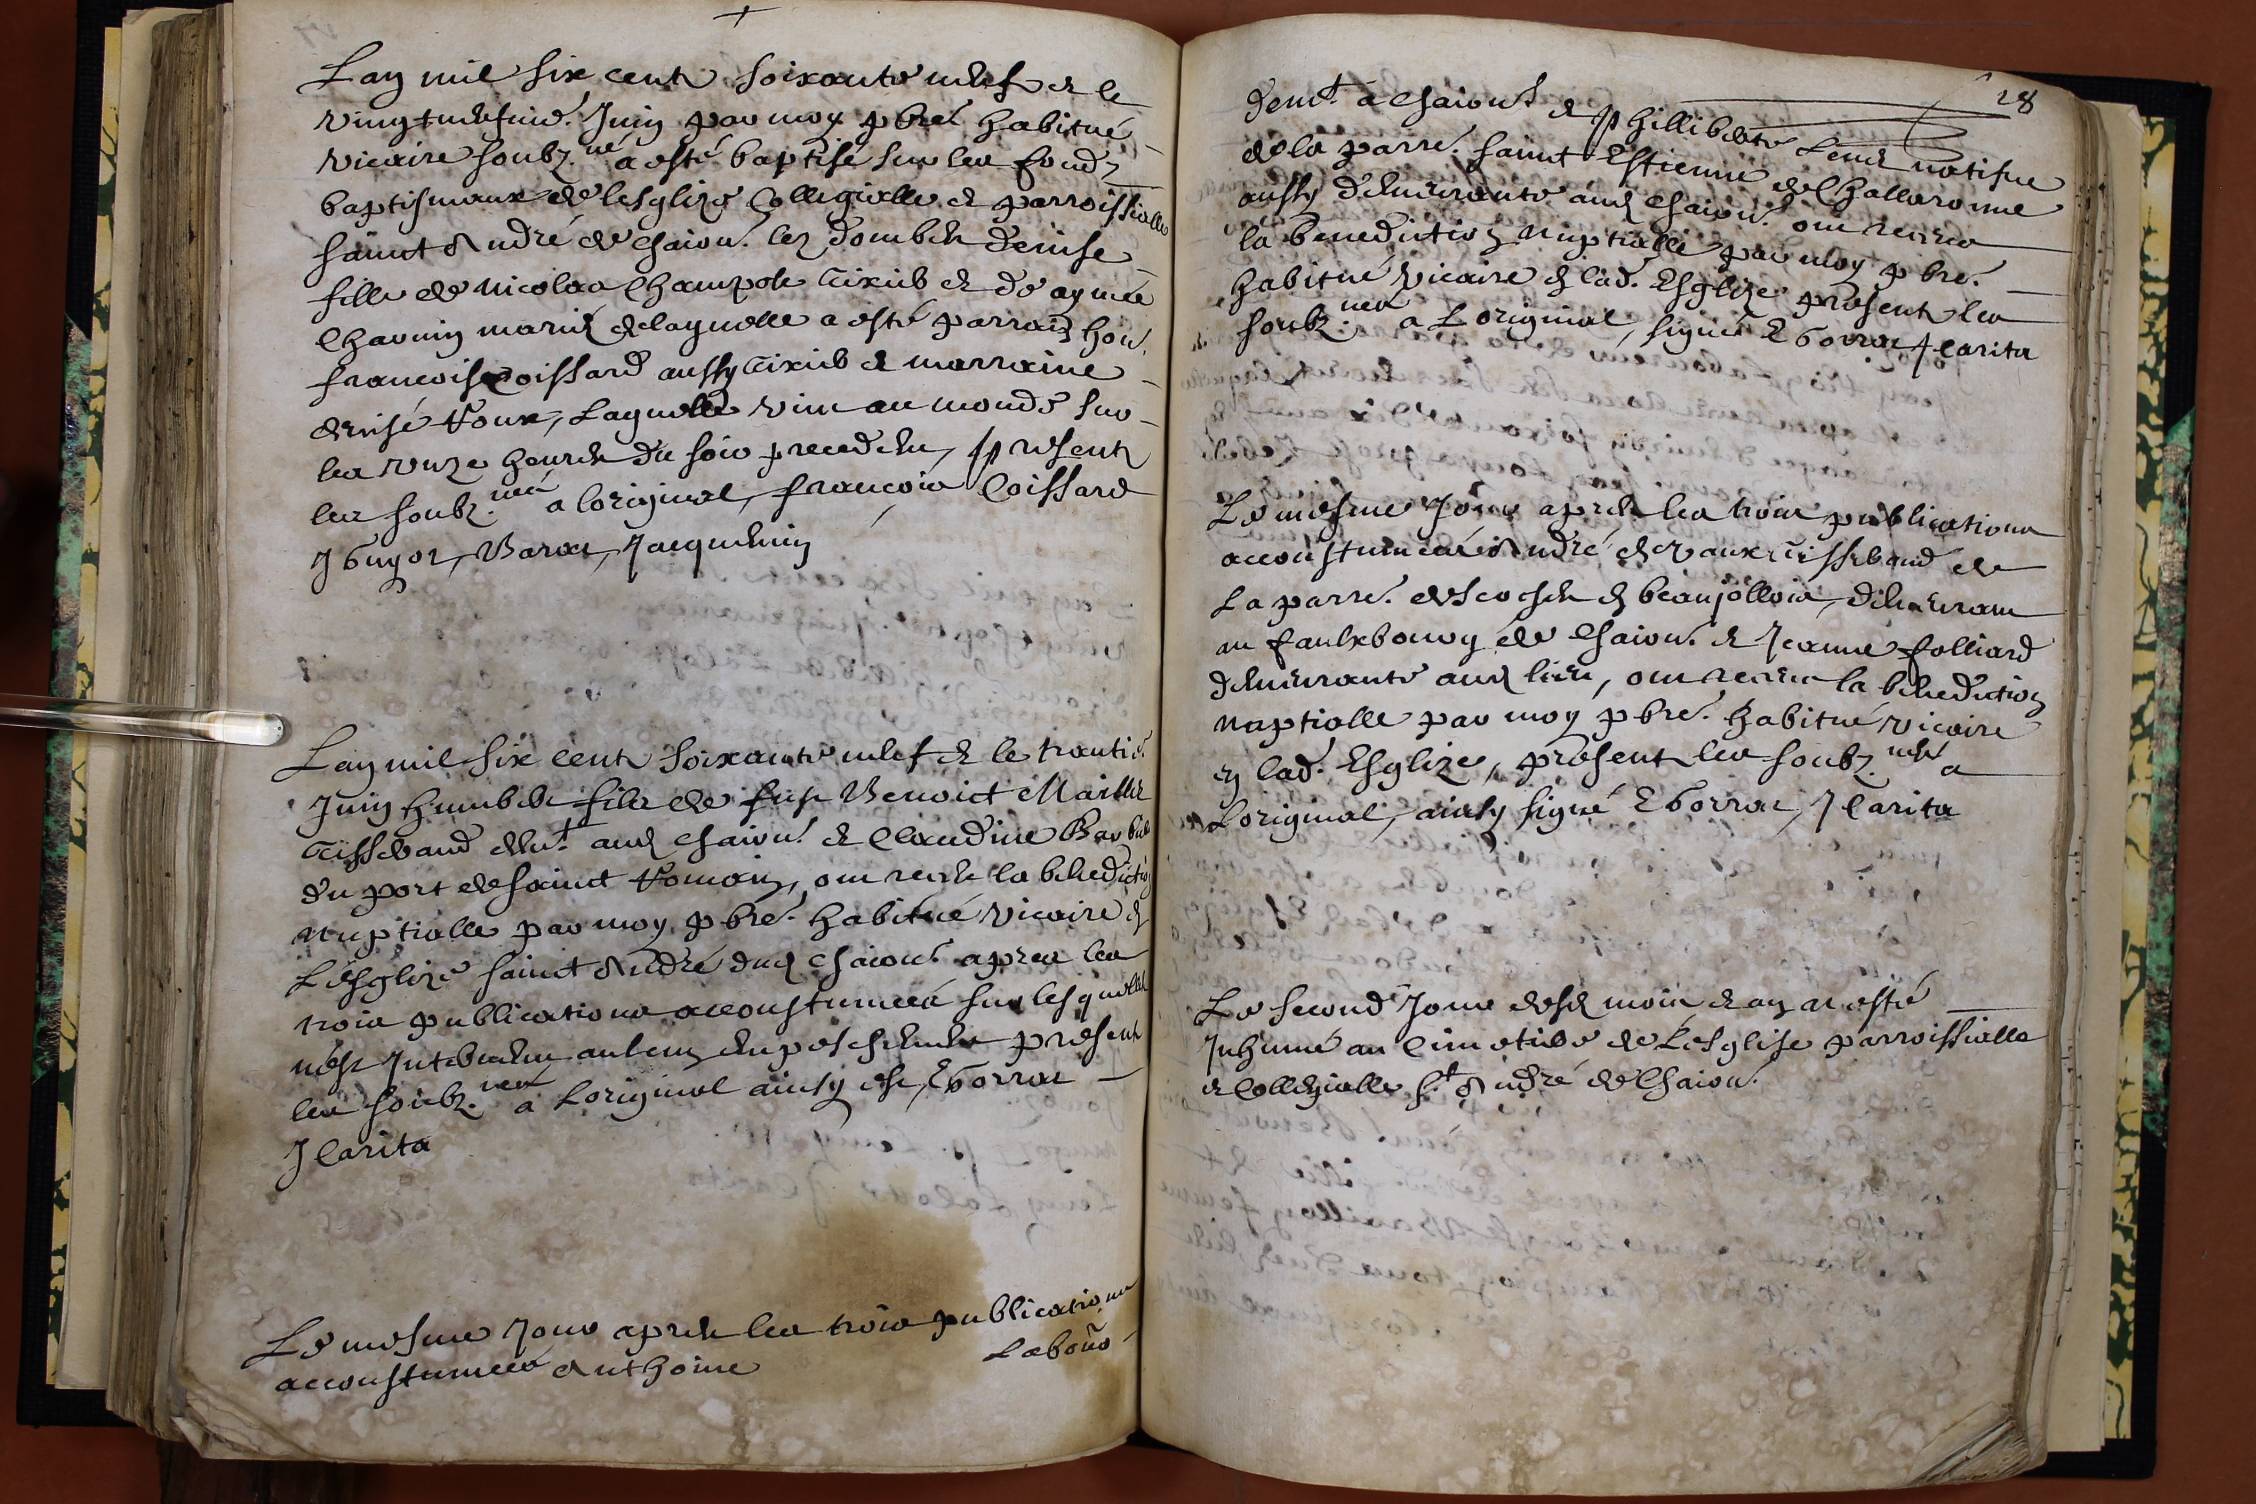 Lan mil six cents soixante neuf & le
vingtneufvie. Juin par moy pbre habitué
vicaire soubz.né a esté baptisé sur les fondz
baptismaux de lesglize Collegialle & parroissialle
saint André de Chaion. lez dombes denise
fille de nicolas Champole tixier & de aymée
Charvin mariez de laquelle a esté parrain hon.
francois Coissard aussy tixier & marraine
denise Roux, Laquelle vint au monde sur
les unze heures du soir precedent, presents
les soubz.nés a loriginal, francois Coissard
J Guyot, Barat, Jacquemin
Lan mil six cents soixante neuf & le trantie.
Juin humbert fils de feu Benoict Maillet
tisserand demt. aud Chaion. & Claudine Barbet
du port de sainct Romain, ont receu la benediction
nuptialle par moy pbre habitué vicaire en
Lesglize sainct André dud Chaion. apres les
trois publications accoustumées sur lesquelles
nest Intervenu aulcun empeschement presents
les soubz.nés a Loriginal ainsy est, E Gorrat
J Carita
Le mesme Jour apres les trois publications
accoustumées Anthoine Labour
28
demt. a Chaion. & Philliberte
de la parre. saint Estienne de Challaronne
aussy demeurante aud Chaion. ont receu
la benediction nuptialle par moy pbre.
habitué vicaire en lad. Esglize presents les
soubz.nés a Loriginal, signé E Gorrat J Carita
Le mesme Jour apres les trois publications
accoustumées André devaux tisserand de
La parre. en beaujollois, demeurant
au faulxbourg de Chaion. & Jeanne folliard
demeurante aud lieu, ont receu la benediction
nuptialle par moy pbre. habitué vicaire
en lad. Esglize, presents les soubz.nés a
Loriginal, ainsy signé E Gorrat, J Carita
Le second Jour desd mois & an a esté
Inhumé au Cimetiere de Lesglise parroissialle
& Collegialle St. André de Chaion.